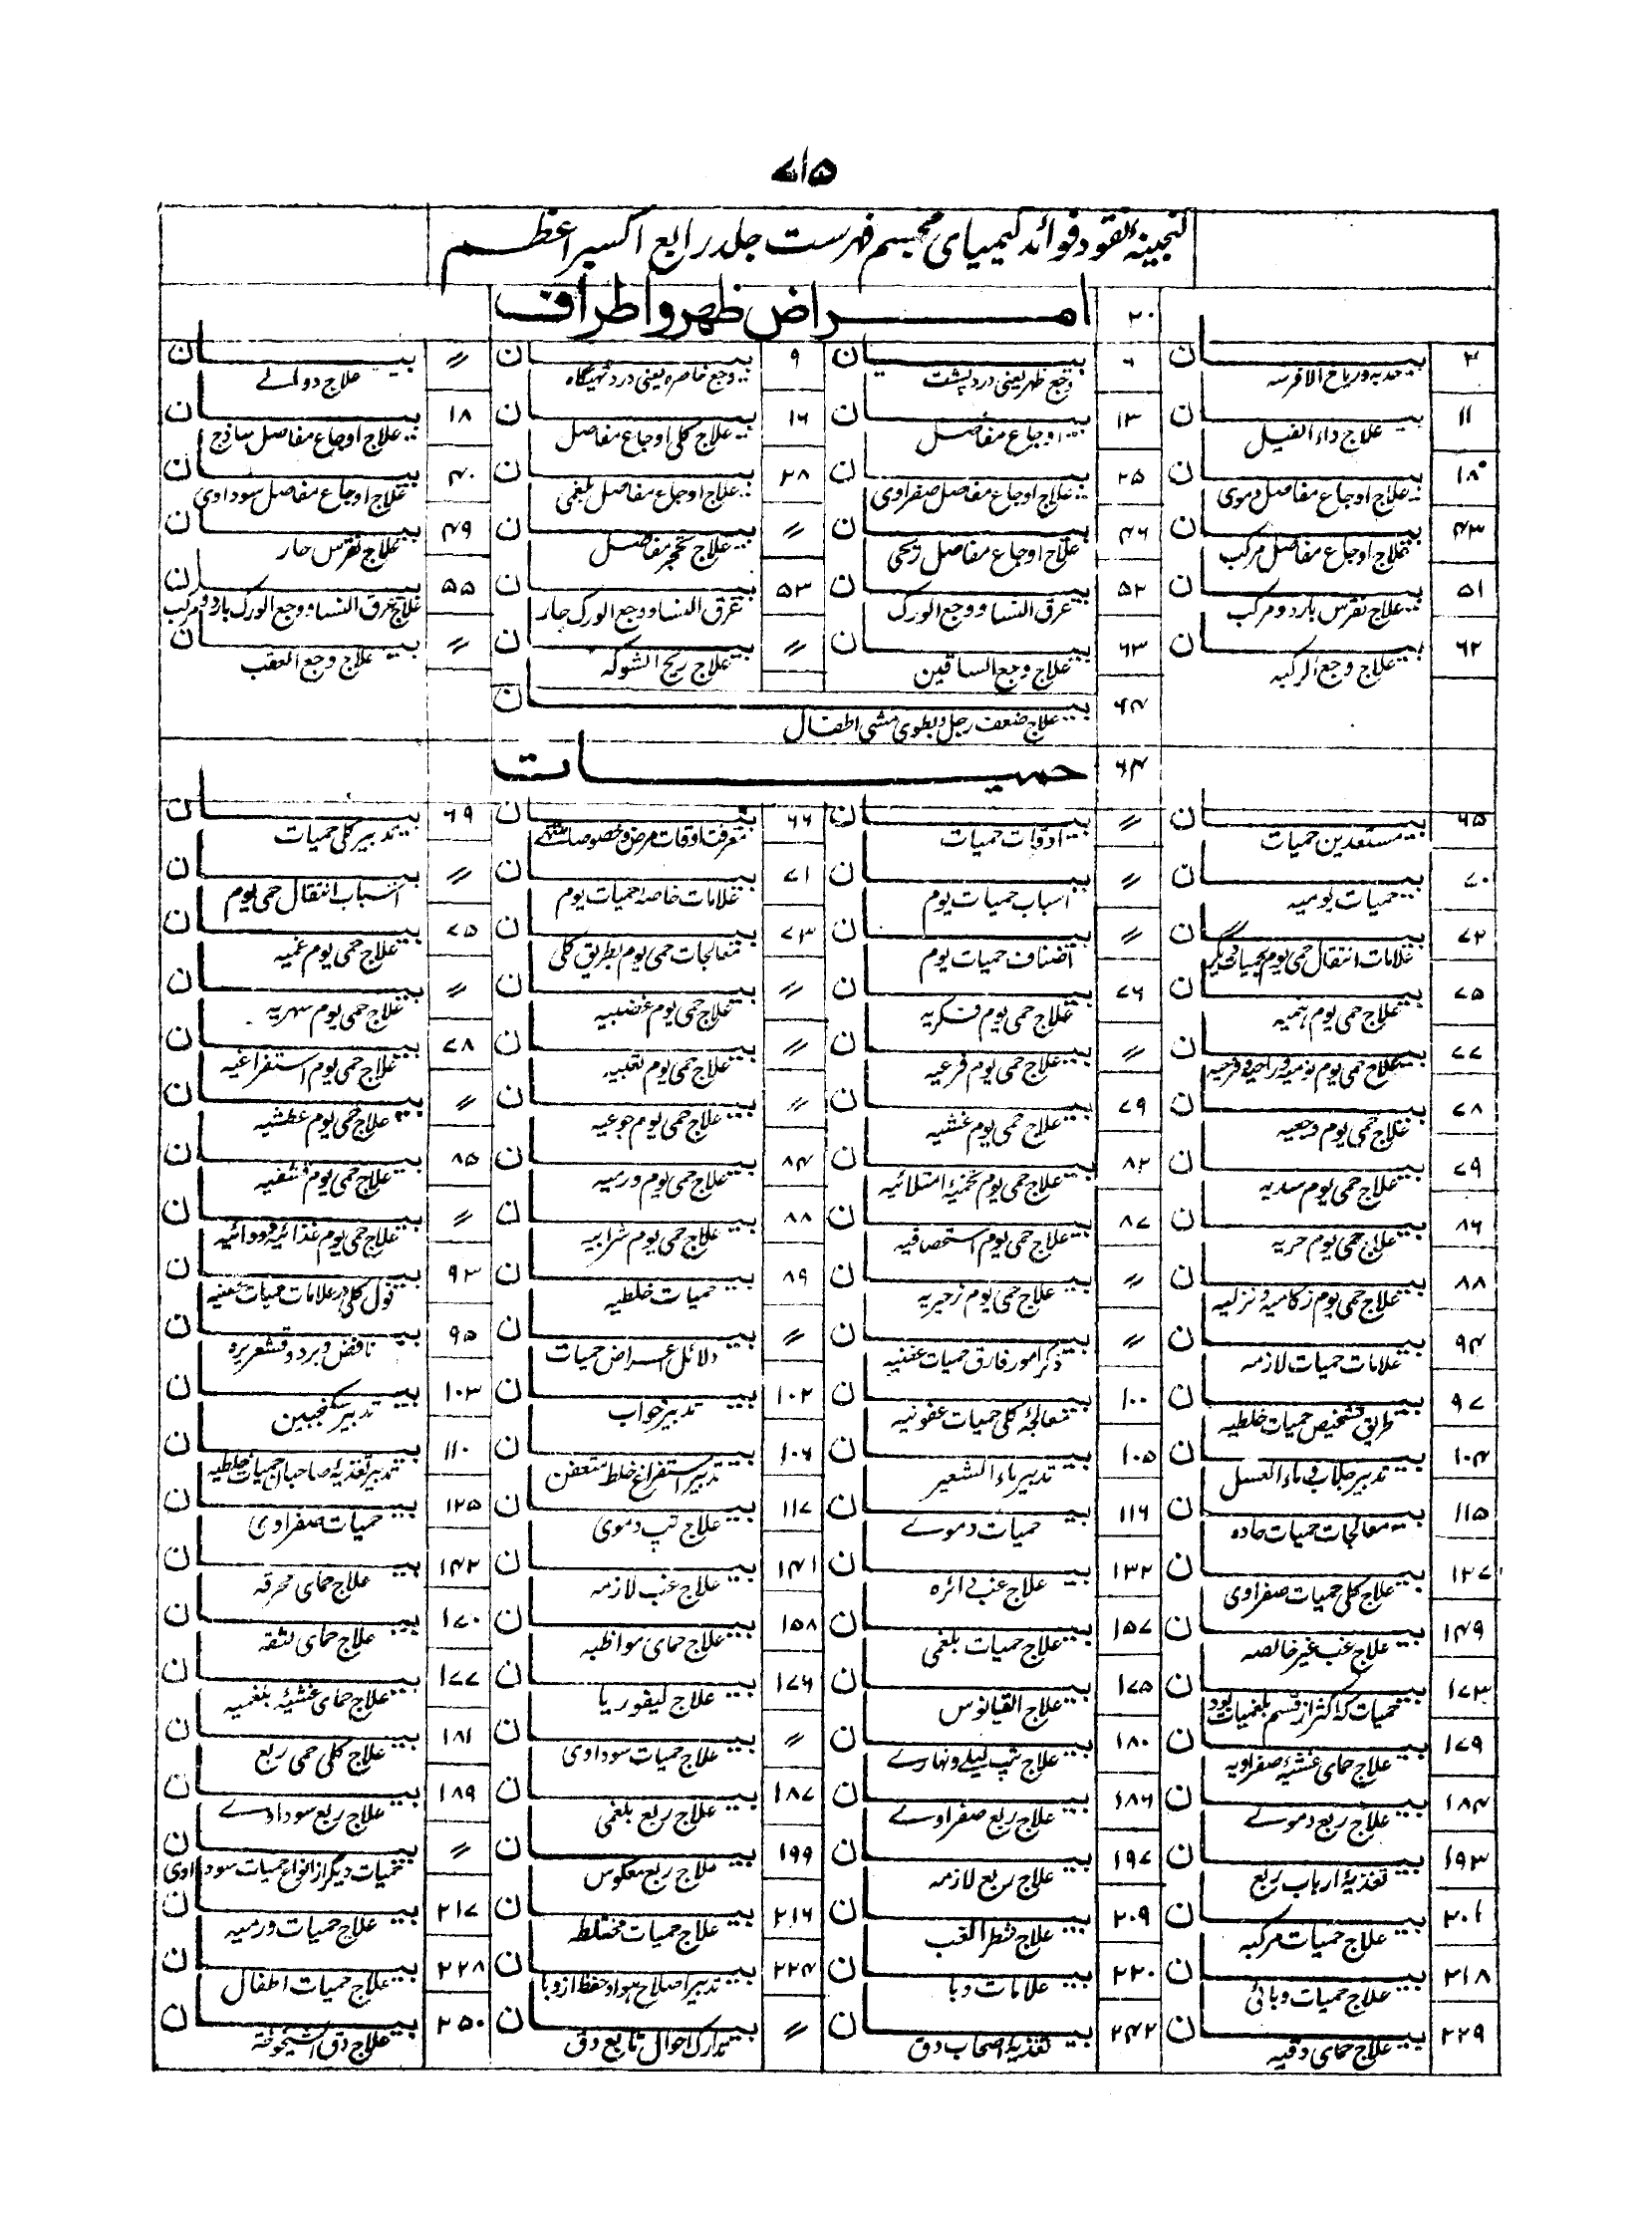 ۷۱۵
گنجینهٔ نقود فوائد کیمیای مجسم فهرست جلد رابع اکسیر اعظم
۲۰ امراض ظهر و اطراف
۳ بیان حدبه و ریاح الافرسه ۶ بیان وجع ظهر یعنی درد پشت ۹ بیان وجع خاصره یعنی درد تهیگاه 〃 بیان علاج دوالے
۱۱ بیان علاج داء الفیل ۱۳ بیان اوجاع مفاصل ۱۶ بیان علاج کلی اوجاع مفاصل ۱۸ بیان علاج اوجاع مفاصل ساذج
۱۸ بیان علاج اوجاع مفاصل دموی ۲۵ بیان علاج اوجاع مفاصل صفراوی ۲۸ بیان علاج اوجاع مفاصل بلغمی ۴۰ بیان علاج اوجاع مفاصل سوداوی
۴۳ بیان علاج اوجاع مفاصل مرکب ۴۶ بیان علاج اوجاع مفاصل ریحی 〃 بیان علاج تحجر مفاصل ۴۹ بیان علاج نقرس حار
۵۱ بیان علاج نقرس بارد و مرکب ۵۲ بیان عرق النسا و وجع الورک ۵۳ بیان عرق النسا و وجع الورک حار ۵۵ بیان علاج عرق النسا و وجع الورک بارد و مرکب
۶۲ بیان علاج وجع الرکبه ۶۳ بیان علاج وجع الساقین 〃 بیان علاج ریح الشوکه 〃 بیان علاج وجع العقب
۶۴ بیان علاج ضعف رجل و بطوی مشی اطفال
۶۴ حمیات
۶۵ بیان مستعدین حمیات 〃 بیان ادوات حمیات ۶۶ بیان معرفت اوقات مرض و خصوصات منتهی ۶۹ بیان تدبیر کلی حمیات
۷۰ بیان حمیات یومیه 〃 بیان اسباب حمیات یوم ۷۱ بیان علامات خاصهٔ حمیات یوم 〃 بیان اسباب انتقال حمی یوم
۷۲ بیان علامات انتقال حمی یوم بحمیات دیگر 〃 بیان اصناف حمیات یوم ۷۳ بیان معالجات حمی یوم بطریق کلی ۷۵ بیان علاج حمی یوم غمیه
۷۵ بیان علاج حمی یوم همیه ۷۶ بیان علاج حمی یوم فکریه 〃 بیان علاج حمی یوم غضبیه 〃 بیان علاج حمی یوم سهریه
۷۷ بیان علاج حمی یوم نومیه و راحیه و فرحیه 〃 بیان علاج حمی یوم فزعیه 〃 بیان علاج حمی یوم تعبیه ۷۸ بیان علاج حمی یوم استفراغیه
۷۸ بیان علاج حمی یوم وجعیه ۷۹ بیان علاج حمی یوم غشیه 〃 بیان علاج حمی یوم جوعیه 〃 بیان علاج حمی یوم عطشیه
۷۹ بیان علاج حمی یوم سدیه ۸۲ بیان علاج حمی یوم تخمیهٔ امتلائیه ۸۴ بیان علاج حمی یوم ورمیه ۸۵ بیان علاج حمی یوم قشفیه
۸۶ بیان علاج حمی یوم حریه ۸۷ بیان علاج حمی یوم استحصافیه ۸۸ بیان علاج حمی یوم شرابیه 〃 بیان علاج حمی یوم غذائیه و دوائیه
۸۸ بیان علاج حمی یوم زکامیه و نزلیه 〃 بیان علاج حمی یوم زحیریه ۸۹ بیان حمیات خلطیه ۹۳ بیان قول کلی در علامات حمیات عفنیه
۹۴ بیان علامات حمیات لازمه 〃 بیان ذکر امور فارق حمیات عفنیه 〃 بیان دلائل اعراض حمیات ۹۵ بیان نافض و برد و قشعریره
۹۷ بیان طریق تشخیص حمیات خلطیه ۱۰۰ بیان معالجهٔ کلی حمیات عفونیه ۱۰۲ بیان تدبیر خواب ۱۰۳ بیان تدبیر سکنجبین
۱۰۴ بیان تدبیر جلاب و ماء العسل ۱۰۵ بیان تدبیر ماء الشعیر ۱۰۶ بیان تدبیر استفراغ خلط متعفن ۱۱۰ بیان تدبیر تغذیهٔ صاحبان حمیات خلطیه
۱۱۵ بیان معالجات حمیات حاده ۱۱۶ بیان حمیات دموے ۱۱۷ بیان علاج تپ دموی ۱۲۵ بیان حمیات صفراوی
۱۲۷ بیان علاج کلی حمیات صفراوی ۱۳۲ بیان علاج غب دائره ۱۴۱ بیان علاج غب لازمه ۱۴۲ بیان علاج حمای محرقه
۱۴۹ بیان علاج غب غیر خالصه ۱۵۷ بیان علاج حمیات بلغمی ۱۵۸ بیان علاج حمای مواظبه ۱۷۰ بیان علاج حمای لثقه
۱۷۳ بیان حمیات که اکثر از قسم بلغمیات بود ۱۷۵ بیان علاج انقیالوس ۱۷۶ بیان علاج لیفوریا ۱۷۷ بیان علاج حمای غشیهٔ بلغمیه
۱۷۹ بیان علاج حمای غشیهٔ صفراویه ۱۸۰ بیان علاج تپ لیلے و نهارے 〃 بیان علاج حمیات سوداوی ۱۸۱ بیان علاج کلی حمی ربع
۱۸۴ بیان علاج ربع دموے ۱۸۶ بیان علاج ربع صفراوے ۱۸۷ بیان علاج ربع بلغمی ۱۸۹ بیان علاج ربع سوداوے
۱۹۳ بیان تغذیهٔ ارباب ربع ۱۹۷ بیان علاج ربع لازمه ۱۹۹ بیان علاج ربع معکوس 〃 بیان حمیات دیگر از انواع حمیات سوداوی
۲۰۱ بیان علاج حمیات مرکبه ۲۰۹ بیان علاج شطر الغب ۲۱۶ بیان علاج حمیات مختلطه ۲۱۷ بیان علاج حمیات ورمیه
۲۱۸ بیان علاج حمیات وبائی ۲۲۰ بیان علامات وبا ۲۲۴ بیان تدبیر اصلاح هوا و حفظ از وبا ۲۲۸ بیان علاج حمیات اطفال
۲۲۹ بیان علاج حمای دقیه ۲۴۲ بیان تغذیهٔ اصحاب دق 〃 بیان تدارک احوال تابع دق ۲۵۰ بیان علاج دق الشیخوخة